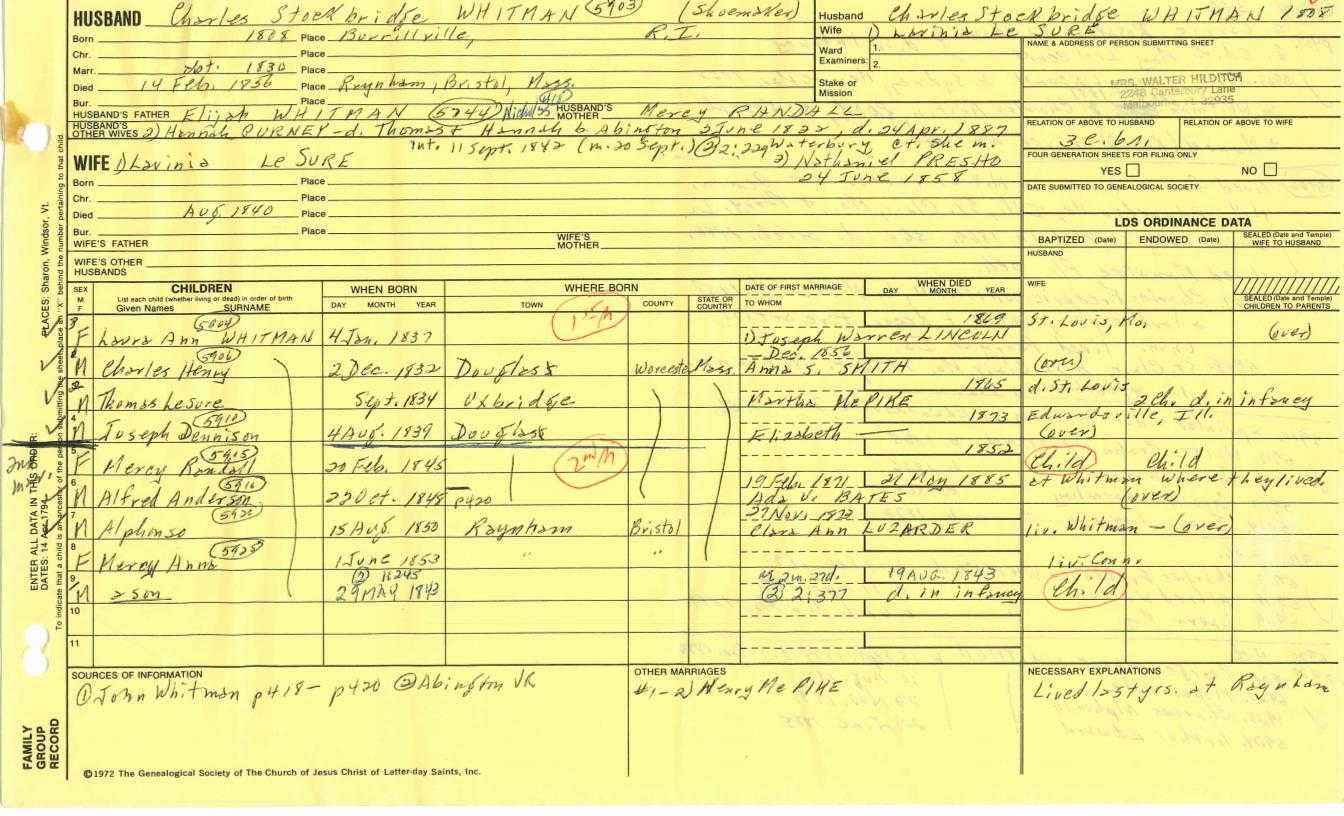 HUSBAND Charles Stockbridge WHITMAN (5903) (Shoemaker)
Born 1808 Place Burrillville, R.I.
Chr. Place
Marr. abt. 1830 Place
Died 14 Feb. 1856 Place Raynham, Bristol, Mass.
Bur. Place
HUSBAND'S FATHER Elijah WHITMAN (5744) Nicholas HUSBAND'S MOTHER Mercy RANDALL
HUSBAND'S OTHER WIVES 2) Hannah GURNEY - d. Thomas & Hannah b. Abington 2 June 1822, d. 24 Apr. 1887
Int. 11 Sept. 1842 (m. 20 Sept.) (2) 2:229 Waterbury, Ct. She m.
2) Nathaniel PRESHO
24 June 1858
WIFE 1) Lavinia Le SURE
Born Place
Chr. Place
Died Aug. 1840 Place
Bur. Place
WIFE'S FATHER WIFE'S MOTHER
WIFE'S OTHER HUSBANDS
Husband Charles Stockbridge WHITMAN 1808
Wife 1) Lavinia Le SURE
Ward Examiners: 1. 2.
Stake or Mission
NAME & ADDRESS OF PERSON SUBMITTING SHEET
MRS. WALTER HILDITCH
2248 Canterbury Lane
Melbourne, FL 32935
RELATION OF ABOVE TO HUSBAND RELATION OF ABOVE TO WIFE
FOUR GENERATION SHEETS FOR FILING ONLY
YES NO
DATE SUBMITTED TO GENEALOGICAL SOCIETY
LDS ORDINANCE DATA
BAPTIZED (Date) ENDOWED (Date) SEALED (Date and Temple) WIFE TO HUSBAND
HUSBAND
WIFE
SEALED (Date and Temple) CHILDREN TO PARENTS
SEX M F
CHILDREN
List each child (whether living or dead) in order of birth
Given Names SURNAME
WHEN BORN
DAY MONTH YEAR
WHERE BORN
TOWN COUNTY STATE OR COUNTRY
DATE OF FIRST MARRIAGE
TO WHOM
WHEN DIED
DAY MONTH YEAR
1st/h
(5904) 1869 St. Louis, Mo.
F Laura Ann WHITMAN 4 Jan. 1837 1) Joseph Warren LINCOLN (over)
(5906) - Dec. 1856
M Charles Henry 2 Dec. 1832 Douglass Worcester Mass. Anna S. SMITH (over)
1865 d. St. Louis
M Thomas LeSure Sept. 1834 Uxbridge Martha McPIKE 2 Ch. d. in infancy
4 (5910) 1873 Edwardsville, Ill.
M Joseph Dennison 4 Aug. 1839 Douglass Elizabeth — (over)
2nd/h
5 (5915) 1852
F Mercy Randall 20 Feb. 1845 Child Child
6 (5916) 19 Feb. 1871 21 May 1885 at Whitman where they lived
M Alfred Anderson 22 Oct. 1848 p420 Ada V. BATES (over)
7 27 Nov. 1873
M Alphonso 15 Aug. 1850 Raynham Bristol Clara Ann LUZARDER liv. Whitman - (over)
8 (5925)
F Mercy Anna 1 June 1853 " " liv. Conn.
9 (2) 1:245 19 AUG. 1843
M a son 29 MAY 1843 (2) 2:377 d. in infancy Child
10
11
SOURCES OF INFORMATION
(1) John Whitman p418 - p420 (2) Abington VR
OTHER MARRIAGES
#1-2) Henry McPIKE
NECESSARY EXPLANATIONS
Lived last yrs. at Raynham
©1972 The Genealogical Society of The Church of Jesus Christ of Latter-day Saints, Inc.
FAMILY GROUP RECORD
ENTER ALL DATA IN THIS ORDER:
DATES: 14 Apr 1794
PLACES: Sharon, Windsor, Vt.